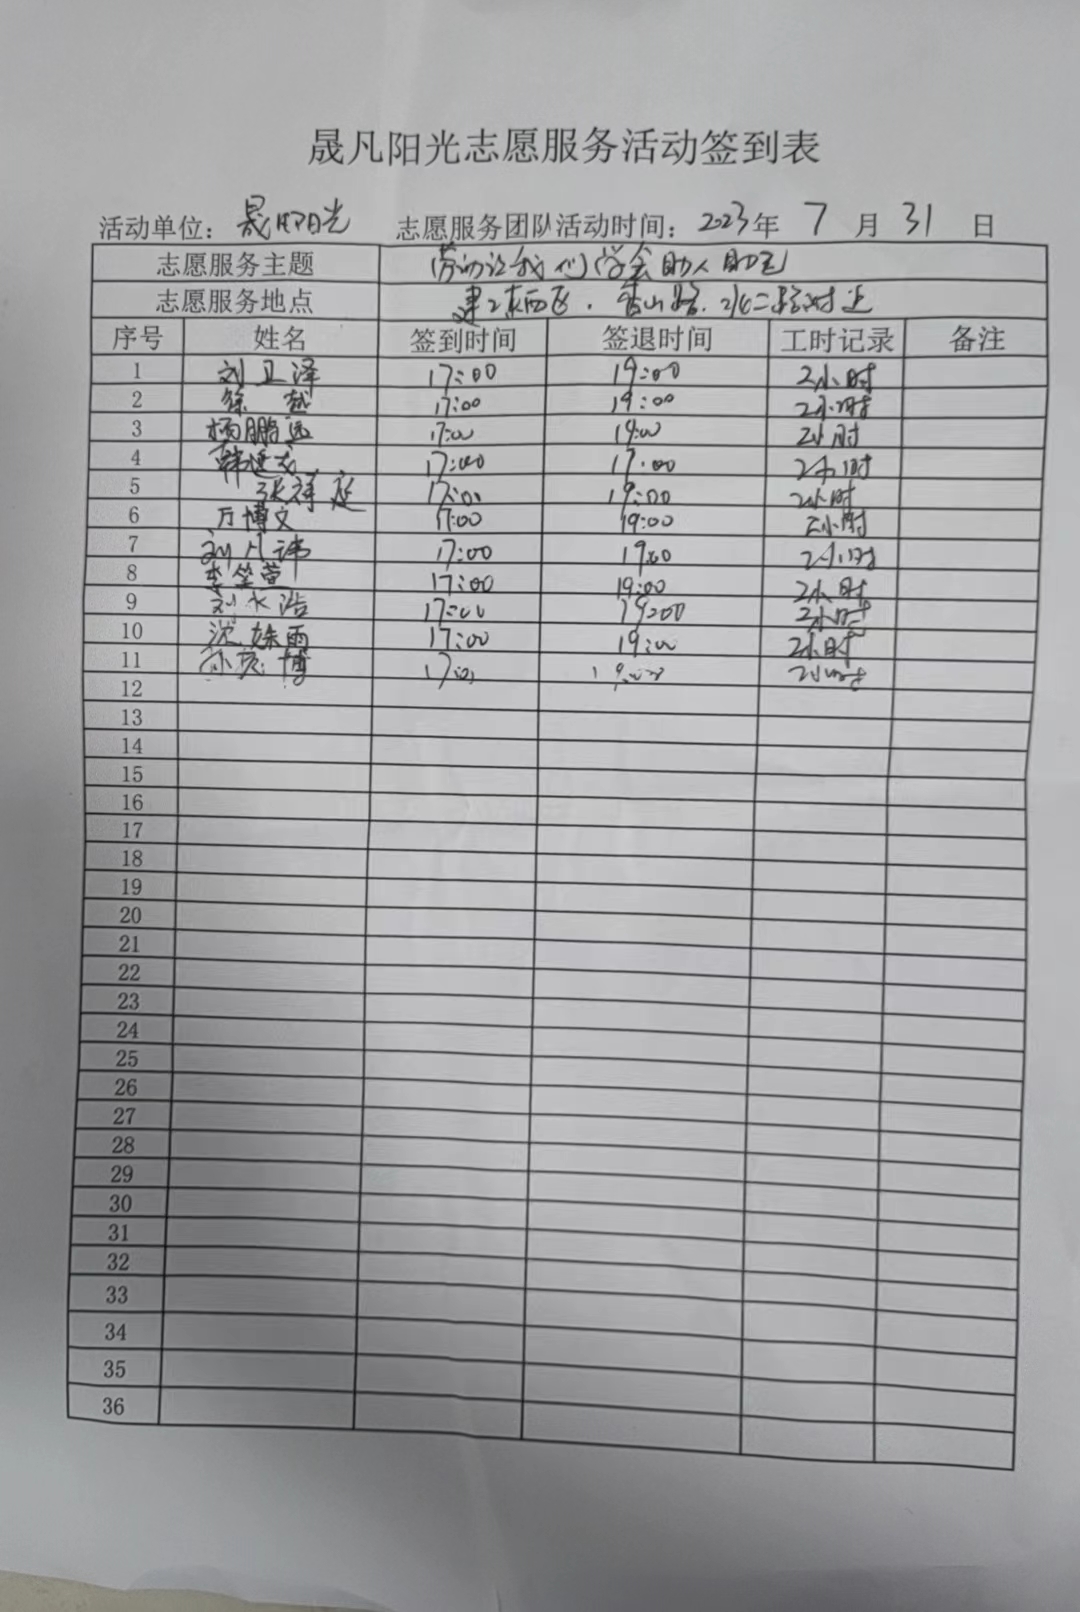 晟凡阳光志愿服务活动签到表
活动单位：晟凡阳光 志愿服务团队活动时间：2023年 7 月 31 日
志愿服务主题 劳动让我们学会助人助己
志愿服务地点
序号 姓名 签到时间 签退时间 工时记录 备注
1 刘卫泽 17:00 19:00 2小时
2 徐越 17:00 19:00 2小时
3 杨鹏远 17:00 19:00 2小时
4 17:00 17:00 2小时
5 张祥庭 17:00 19:00 2小时
6 万博文 17:00 19:00 2小时
7 17:00 19:00 2小时
8 李笙萱 17:00 19:00 2小时
9 17:00 19:00 2小时
10 17:00 19:00 2小时
11 2小时
12
13
14
15
16
17
18
19
20
21
22
23
24
25
26
27
28
29
30
31
32
33
34
35
36